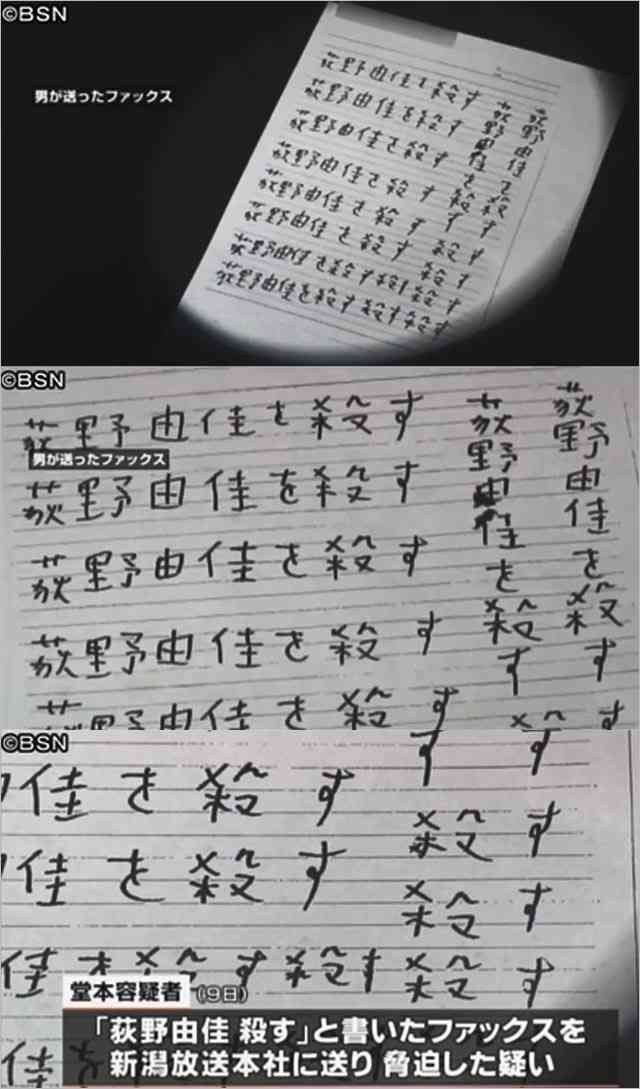 ©BSN
男が送ったファックス
荻野由佳を殺す
荻野由佳を殺す
荻野由佳を殺す
荻野由佳を殺す
荻野由佳を殺す
荻野由佳を殺す
荻野由佳を殺す殺す殺す
荻野由佳を殺す殺す殺す
荻野由佳を殺す
荻野由佳を殺す
殺す
殺す
©BSN
男が送ったファックス
荻野由佳を殺す
荻野由佳を殺す
荻野由佳を殺す
荻野由佳を殺す
荻野由佳を殺す
荻野由佳を殺す
荻野由佳を殺す
殺す
©BSN
佳を殺す
佳を殺す
佳を殺す殺す殺す
す
す
殺す
殺す
堂本容疑者(9日)
「荻野由佳 殺す」と書いたファックスを
新潟放送本社に送り 脅迫した疑い